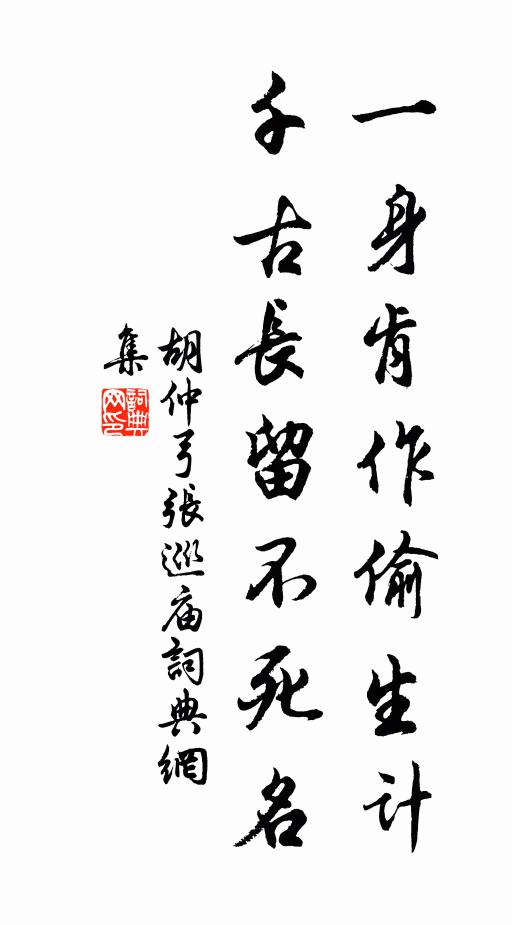 一身肯作偷生計
千古長留不死名
胡仲弓張巡庙詞典網
集
詞典网印